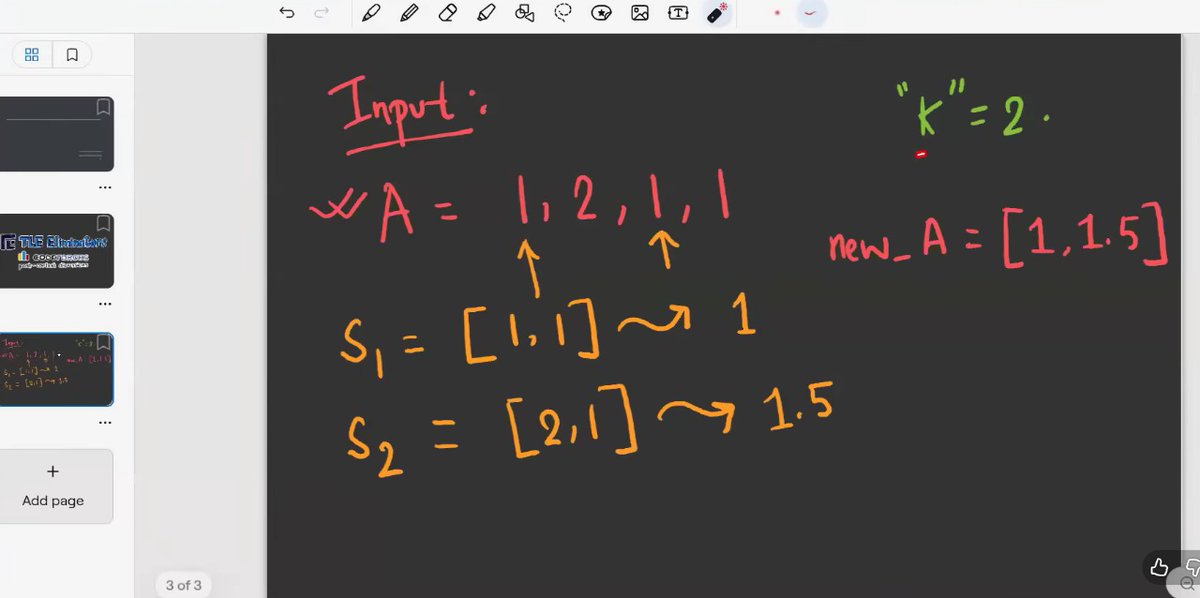 Input:
"K" = 2.
A = 1, 2, 1, 1
new_A = [1, 1.5]
S1 = [1, 1] 1
S2 = [2, 1] 1.5
TLE Eliminators
CODEFORCES
Add page
3 of 3